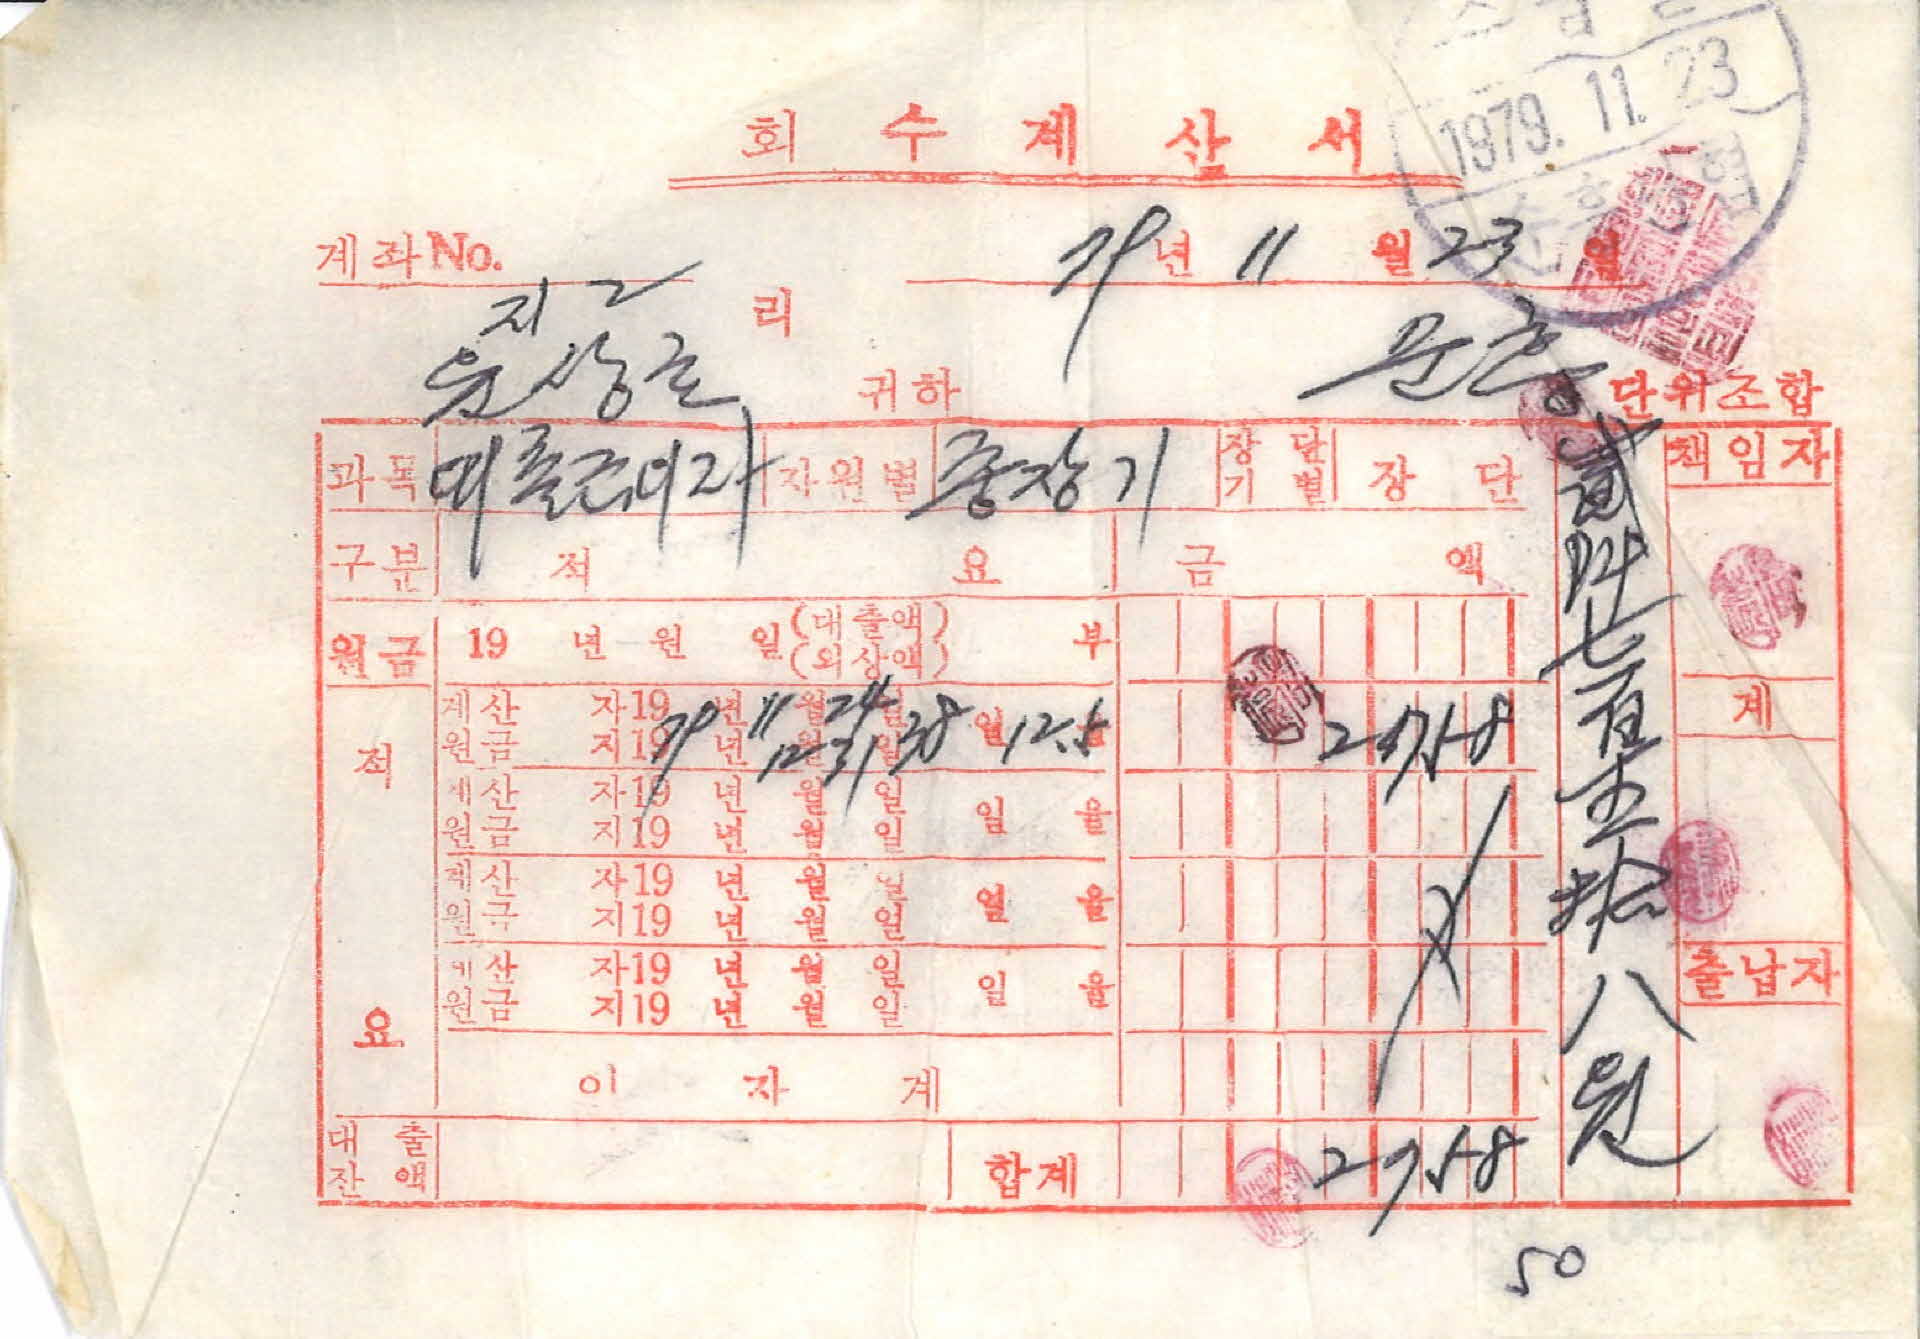 1979. 11. 23
회 수 계 산 서
계좌 No.
79 년 11 월 23 일
지 2 리
윤상근 귀하
단위조합
과목 자원별 중장기 장단기별 장 단
책임자
구분 적 요 금 액
원금 19 년 원 일 (대출액) (외상액) 부
적 요
계산 자19 79 년 11 월 24 일
원금 지19 년 12 월 31 일 38 일 12.5 율 2758
계
계산 자19 년 월 일
원금 지19 년 월 일 일 율
계산 자19 년 월 일
원금 지19 년 월 일 일 율
계산 자19 년 월 일
원금 지19 년 월 일 일 율
출납자
이 자 계
대출잔액 합계 2758
七百五拾八원
50